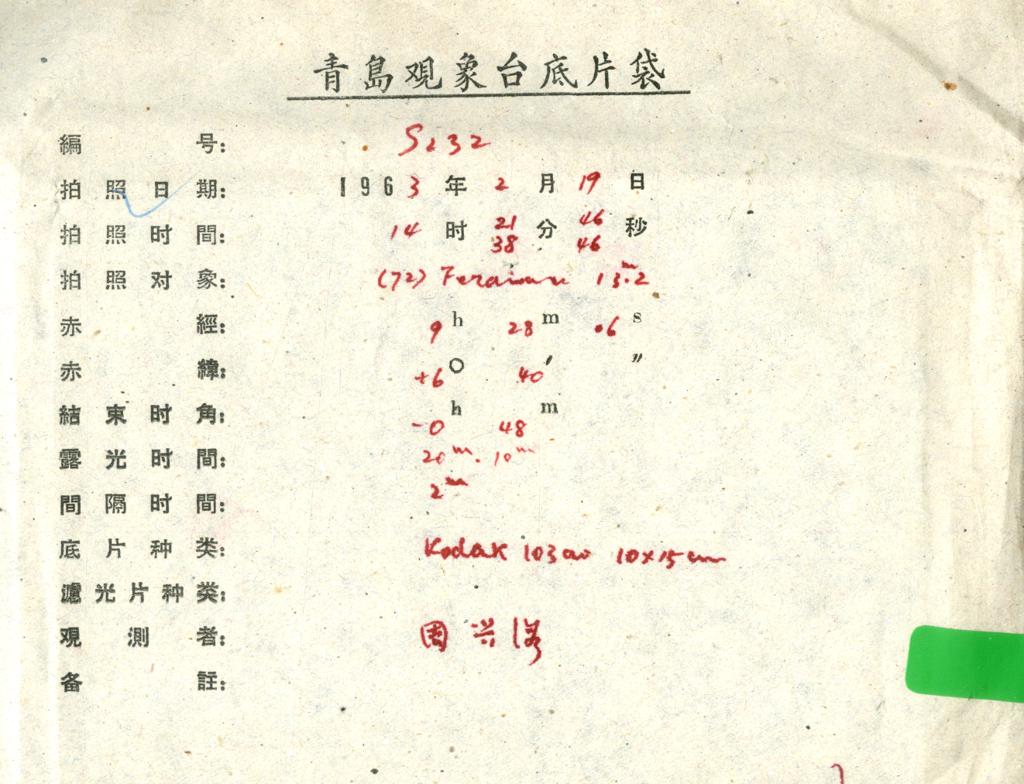 青島观象台底片袋
編号： S232
拍照日期： 1963年2月19日
拍照时間： 14时21分46秒
38 46
拍照对象： (72) Feraiaru 13ᵐ.2
赤經： 9h 28m .6s
赤緯： +6° 40′ ″
結束时角： -0h 48m
露光时間： 20m. 10m
間隔时間： 2m
底片种类： Kodak 103ao 10×15cm
濾光片种类：
观測者：
备註：